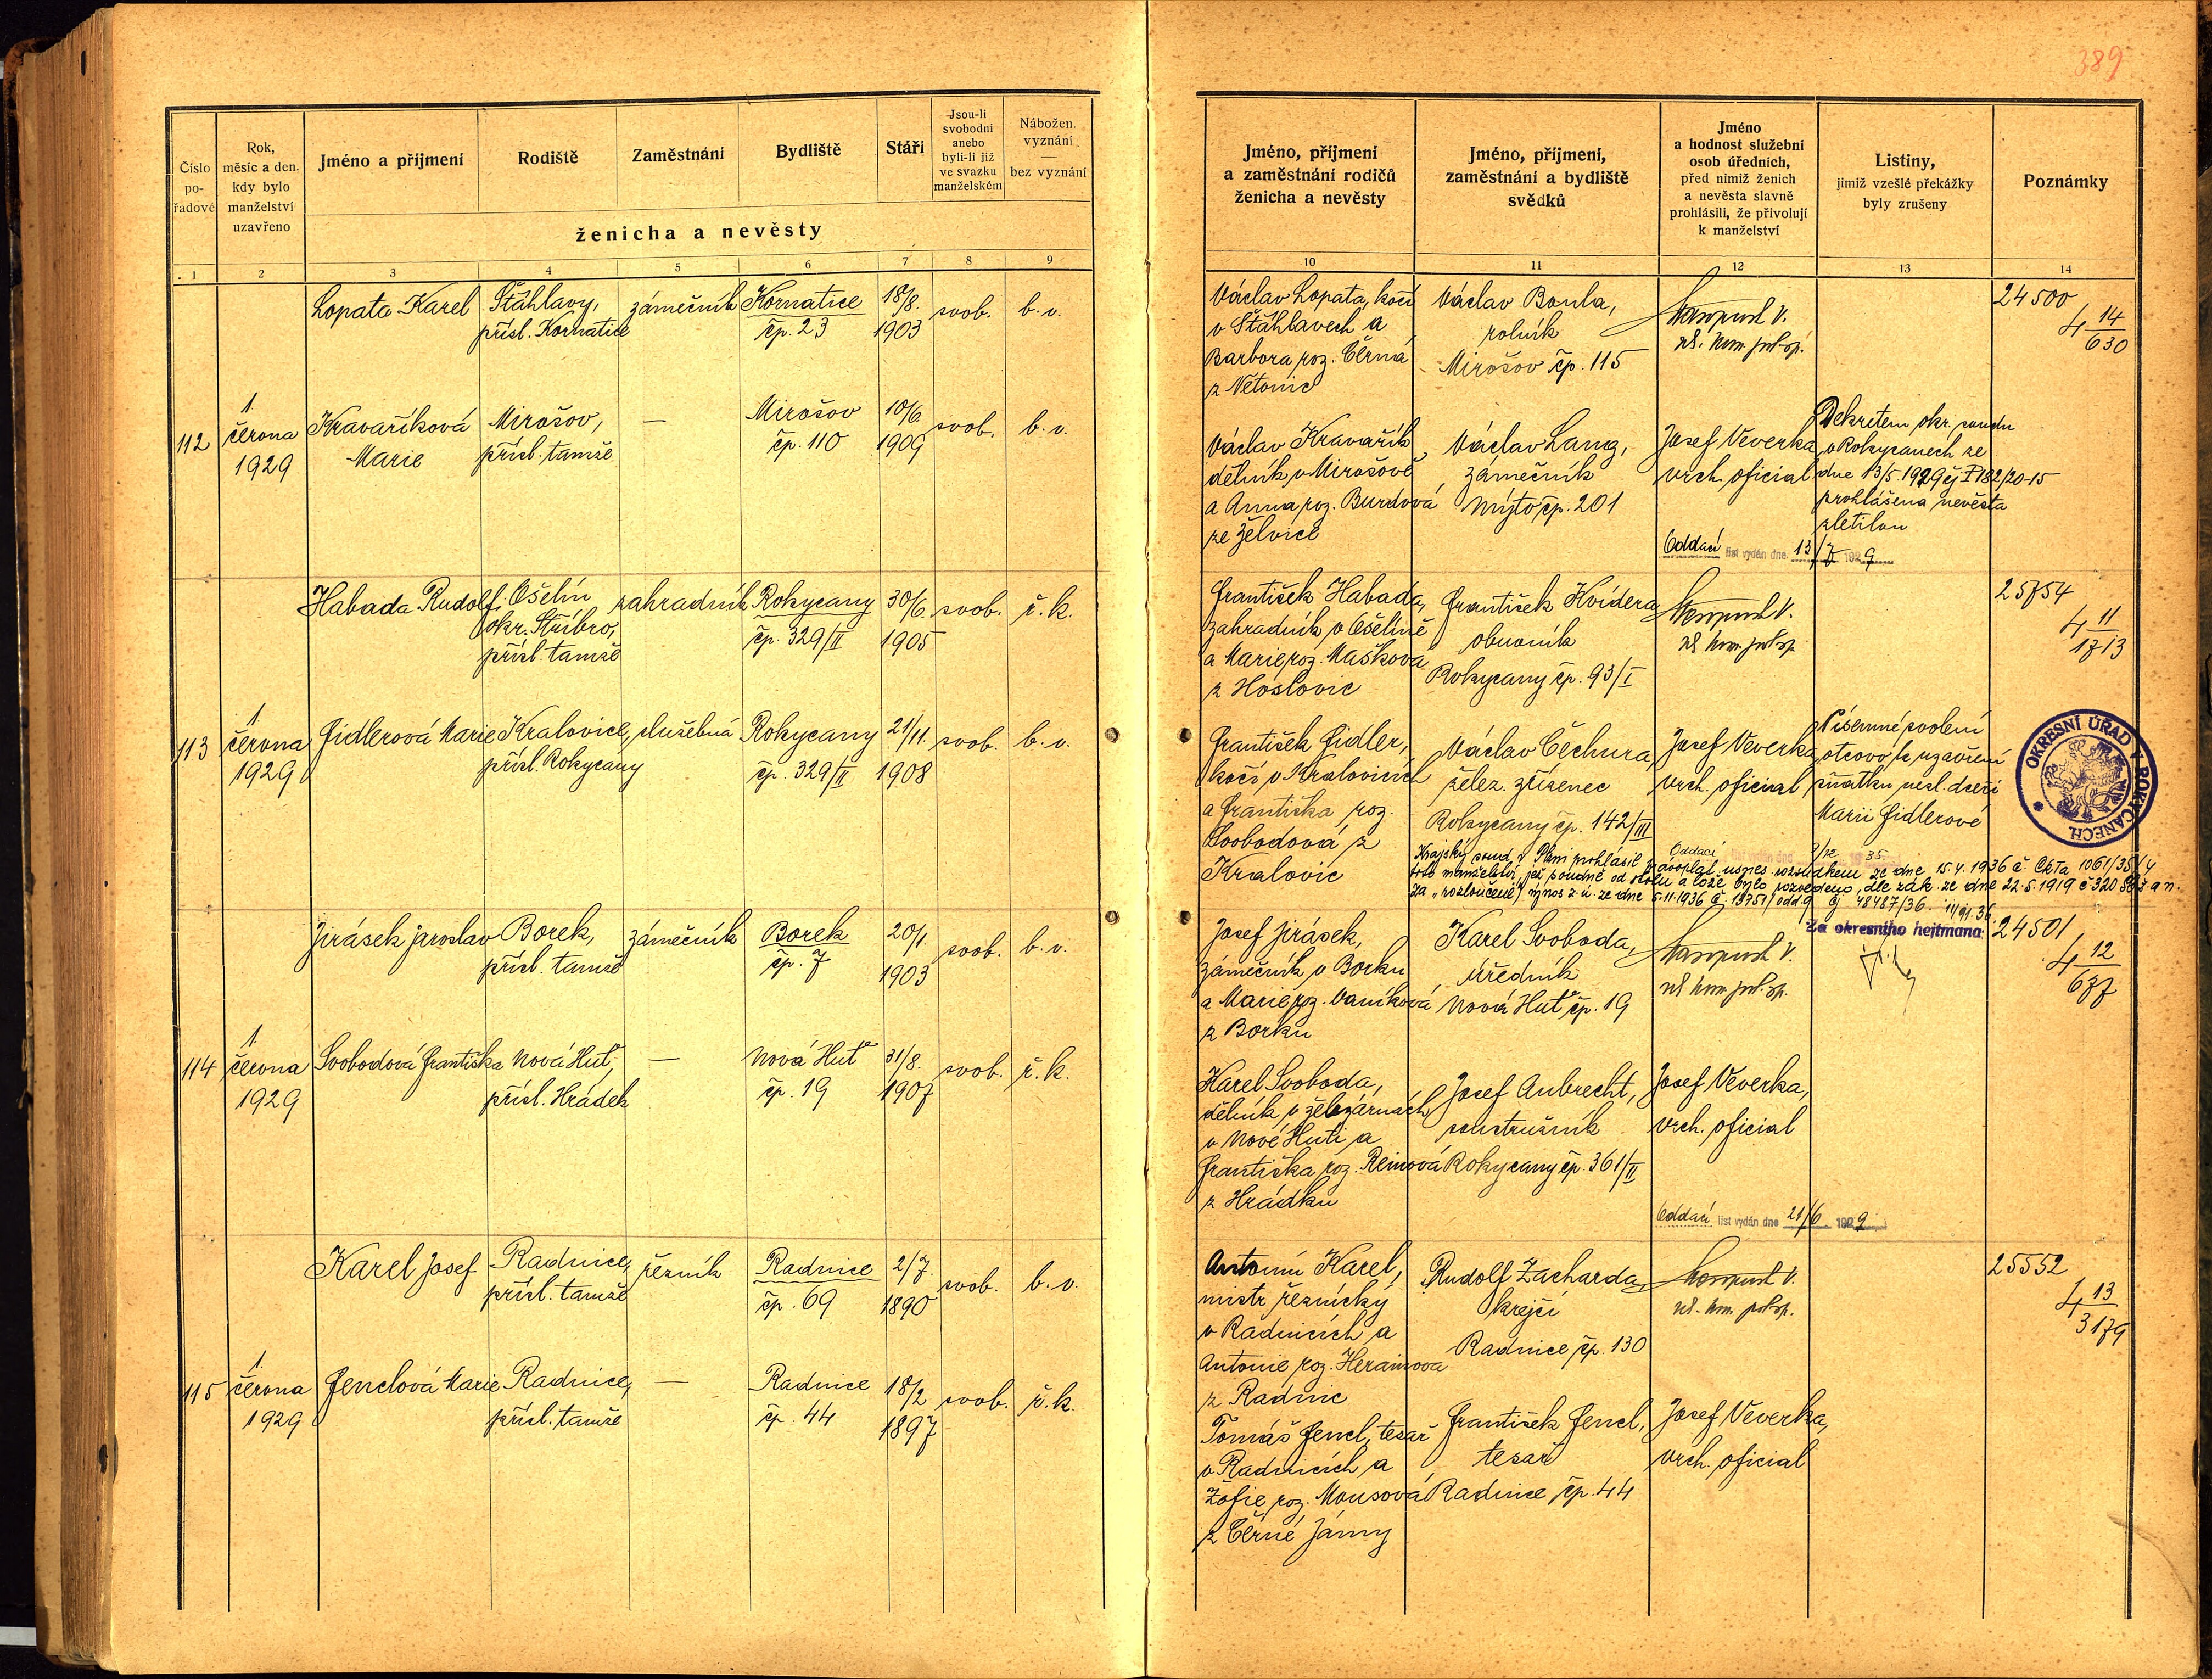 389
Číslo pořadové
Rok, měsíc a den, kdy bylo manželství uzavřeno
Jméno a příjmení
Rodiště
Zaměstnání
Bydliště
Stáří
Jsou-li svobodni anebo byli-li již ve svazku manželském
Nábožen. vyznání — bez vyznání
ženicha a nevěsty
Jméno, příjmení a zaměstnání rodičů ženicha a nevěsty
Jméno, příjmení, zaměstnání a bydliště svědků
Jméno a hodnost služební osob úředních, před nimiž ženich a nevěsta slavně prohlásili, že přivolují k manželství
Listiny, jimiž vzešlé překážky byly zrušeny
Poznámky
1 2 3 4 5 6 7 8 9 10 11 12 13 14
Lopata Karel
Šťáhlavy,
přísl. Kornatice
zámečník
Kornatice
čp. 23
18/8.
1903
svob.
b. v.
Václav Lopata, kočí
v Šťáhlavech a
Barbora roz. Černá
z Netonic
Václav Boula,
rolník
Mirošov čp. 115
24500
4 14/630
112
1.
června
1929
Kravaříková
Marie
Mirošov,
přísl. tamže
—
Mirošov
čp. 110
10/6
1909
svob.
b. v.
Václav Kravařík,
dělník v Mirošově
a Anna roz. Burdová
ze Želvice
Václav Lang,
zámečník
Mýto čp. 201
Josef Veverka,
vrch. oficial
Dekretem okr. soudu
v Rokycanech ze
dne 13/5 1929 čj P 182/20-15
prohlášena nevěsta
zletilou
Oddací list vydán dne 13/7 1929
Habada Rudolf
Ošelín
okr. Stříbro,
přísl. tamže
zahradník
Rokycany
čp. 329/II
30/6.
1905
svob.
ř. k.
František Habada,
zahradník v Ošelíně
a Marie roz. Mašková
z Hoslovic
František Kvídera
obuvník
Rokycany čp. 93/I
25754
4 11/1713
113
1.
června
1929
Fidlerová Marie
Kralovice,
přísl. Rokycany
služebná
Rokycany
čp. 329/II
21/11.
1908
svob.
b. v.
František Fidler,
kočí v Kralovicích
a Františka roz.
Svobodová z
Kralovic
Václav Čechura,
želez. zřízenec
Rokycany čp. 142/III
Josef Veverka,
vrch. oficial
Písemné svolení
otcovo k uzavření
sňatku nezl. dceři
Marii Fidlerové
OKRESNÍ ÚŘAD V ROKYCANECH.
Oddací
Krajský soud v Plzni prohlásil pravoplat. usnes. rozsudkem ze dne 15.4.1936 č. Ck Ia 1061/35/4
toto manželství, jež soudně od stolu a lože bylo rozvedeno, dle zák. ze dne 22.5.1919 č 320 Sb. z. a n.
za „rozloučené“ výnos z. ú. ze dne 5.11.1936 č. 1375/1 odd. 9 čj 48487/36. 11/91.36.
Za okresního hejtmana:
Jirásek Jaroslav
Borek,
přísl. tamže
zámečník
Borek
čp. 7
20/1.
1903
svob.
b. v.
Josef Jirásek,
zámečník v Borku
a Marie roz. Vaníková
z Borku
Karel Svoboda,
úředník
Nová Huť čp. 19
24501
4 12/677
114
1.
června
1929
Svobodová Františka
Nová Huť,
přísl. Hrádek
—
Nová Huť
čp. 19
31/8.
1907
svob.
ř. k.
Karel Svoboda,
dělník v železárnách
v Nové Huti a
Františka roz. Reinová
z Hrádku
Josef Aubrecht,
soustružník
Rokycany čp. 361/II
Josef Veverka,
vrch. oficial
Oddací list vydán dne 21/6. 1929
Karel Josef
Radnice,
přísl. tamže
řezník
Radnice
čp. 69
2/7.
1890
svob.
b. v.
Antonín Karel,
mistr řeznický
v Radnicích a
Antonie roz. Herainova
z Radnic
Rudolf Zacharda,
krejčí
Radnice čp. 130
25552
4 13/3179
115
1.
června
1929
Fenclová Marie
Radnice,
přísl. tamže
—
Radnice
čp. 44
18/2
1897
svob.
ř. k.
Tomáš Fencl, tesař
v Radnicích a
Žofie roz. Mousová
z Černé Jámy
František Fencl,
tesař
Radnice čp. 44
Josef Veverka,
vrch. oficial